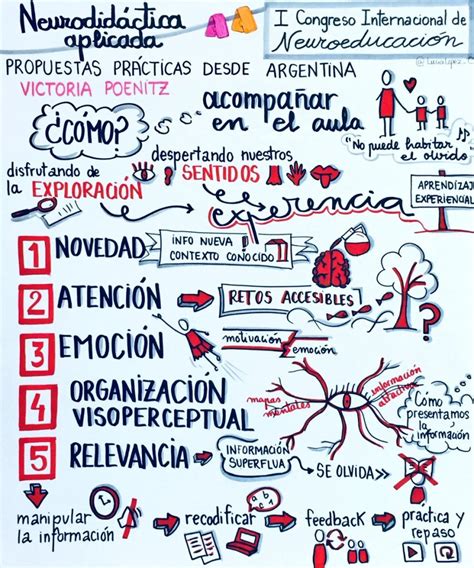 Neurodidáctica
aplicada
I Congreso Internacional de
Neuroeducación
PROPUESTAS PRÁCTICAS DESDE ARGENTINA
VICTORIA POENITZ
acompañar
en el aula
¿CÓMO?
"No puede habitar
el olvido"
despertando nuestros
SENTIDOS
disfrutando de
la EXPLORACIÓN
experiencia
APRENDIZAJE
EXPERIENCIAL
1 NOVEDAD
INFO NUEVA
CONTEXTO CONOCIDO
2 ATENCIÓN
RETOS ACCESIBLES
?
3 EMOCIÓN
motivación
emoción
4 ORGANIZACIÓN
VISOPERCEPTUAL
mapas
mentales
información
atractiva
Cómo
presentamos
la
información
5 RELEVANCIA
INFORMACIÓN
SUPERFLUA
SE OLVIDA
manipular
la información
a b c
recodificar
feedback
práctica y
repaso